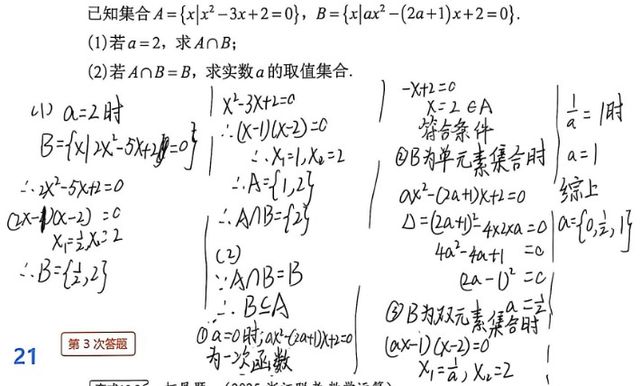 已知集合A={x|x²-3x+2=0}, B={x|ax²-(2a+1)x+2=0}.
(1)若a=2, 求A∩B;
(2)若A∩B=B, 求实数a的取值集合.
(1) a=2时
B={x|2x²-5x+2=0}
∴2x²-5x+2=0
(2x-1)(x-2)=0
x₁=½ x₂=2
∴B={½,2}
x²-3x+2=0
∴(x-1)(x-2)=0
∴x₁=1,x₂=2
∴A={1,2}
∴A∩B={2}
(2)
∵A∩B=B
∴B⊆A
①a=0时;ax²-(2a+1)x+2=0
为一次函数
-x+2=0
x=2∈A
符合条件
②B为单元素集合时
ax²-(2a+1)x+2=0
Δ=(2a+1)²-4×2×a=0
4a²-4a+1=0
(2a-1)²=0
a=½
③B为双元素集合时
(ax-1)(x-2)=0
x₁=1/a, x₂=2
1/a=1时
a=1
综上
a={0,½,1}
第3次答题
21